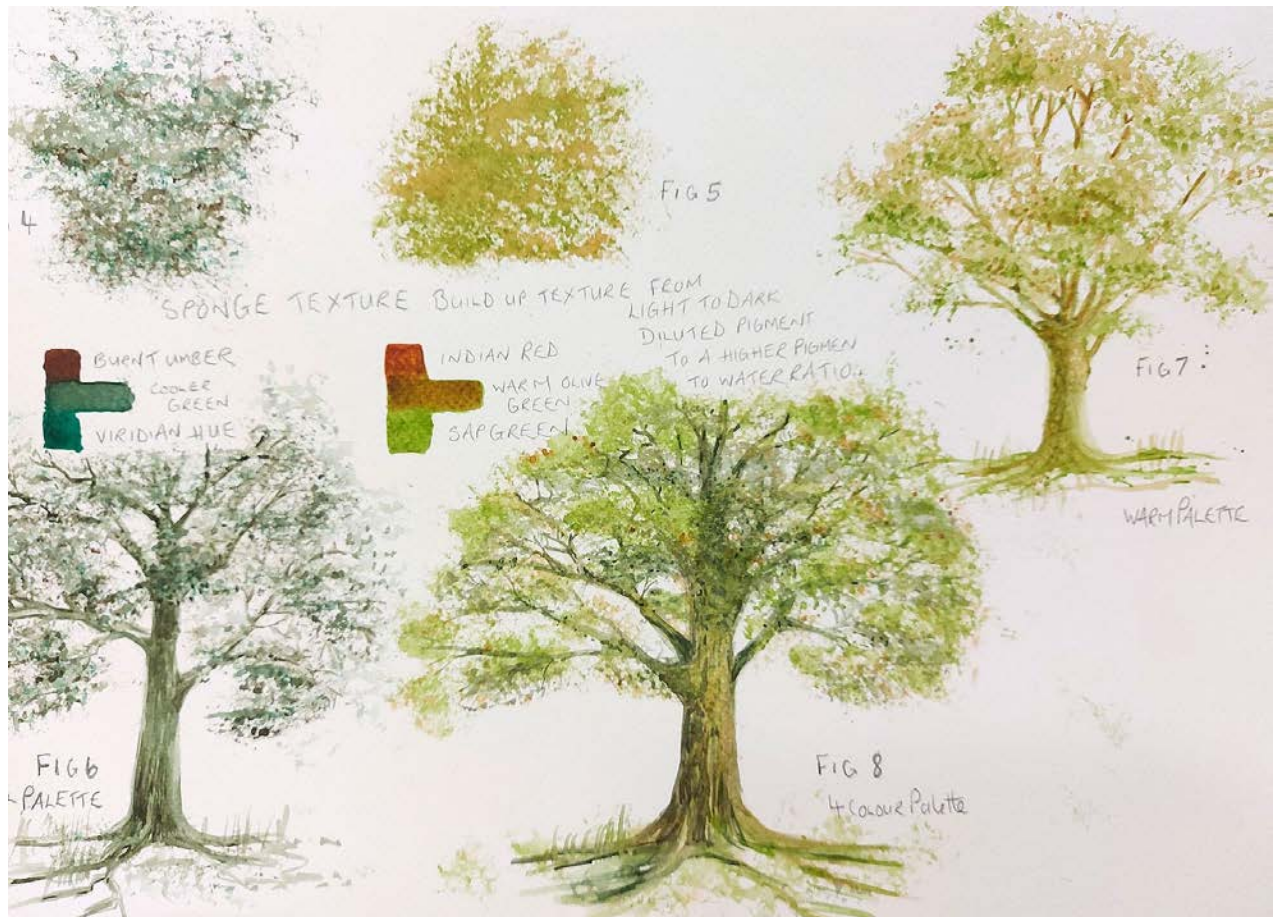 4
FIG 5
SPONGE TEXTURE BUILD UP TEXTURE FROM
LIGHT TO DARK
DILUTED PIGMENT
TO A HIGHER PIGMEN
TO WATER RATIO.
BURNT UMBER
COOLER
GREEN
VIRIDIAN HUE
INDIAN RED
WARM OLIVE
GREEN
SAP GREEN
FIG 7
WARM PALETTE
FIG 6
PALETTE
FIG 8
4 COLOUR Palette